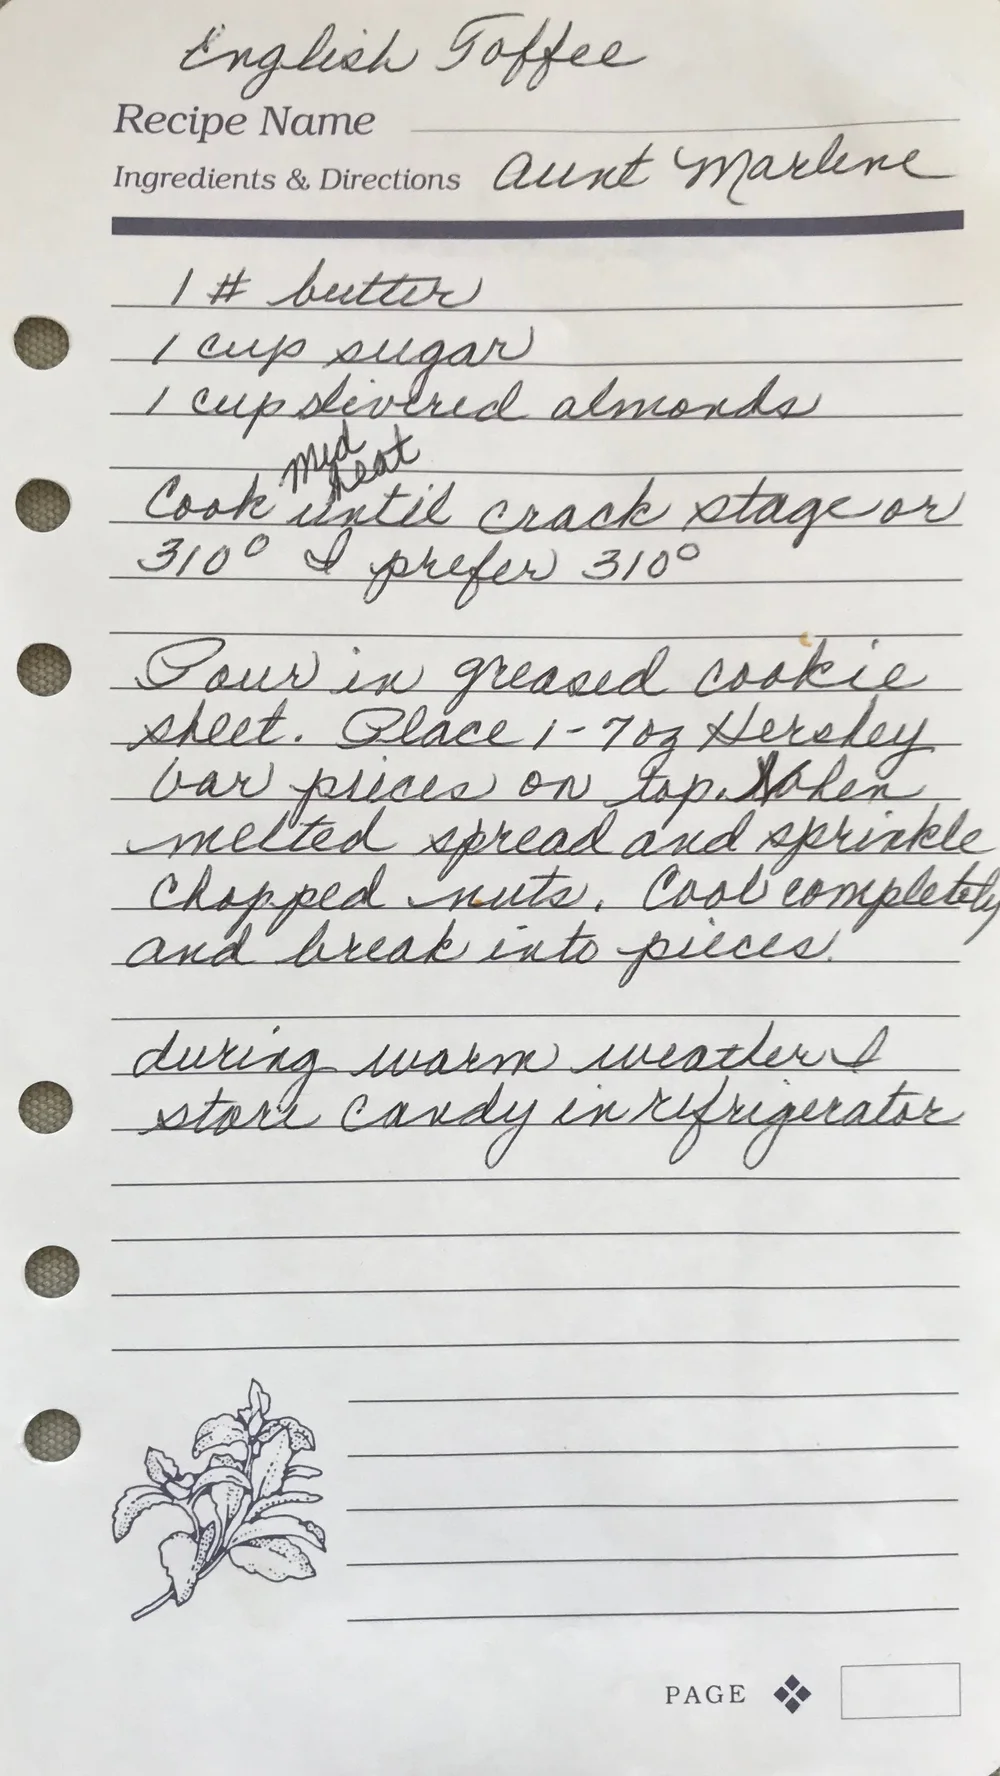 English Toffee
Recipe Name
Ingredients & Directions Aunt Marlene
1 # butter
1 cup sugar
1 cup slivered almonds
med
heat
Cook until crack stage or
310° I prefer 310°
Pour in greased cookie
sheet. Place 1-7oz Hershey
bar pieces on top. When
melted spread and sprinkle
chopped nuts. Cool completely
and break into pieces.
during warm weather I
store candy in refrigerator
PAGE